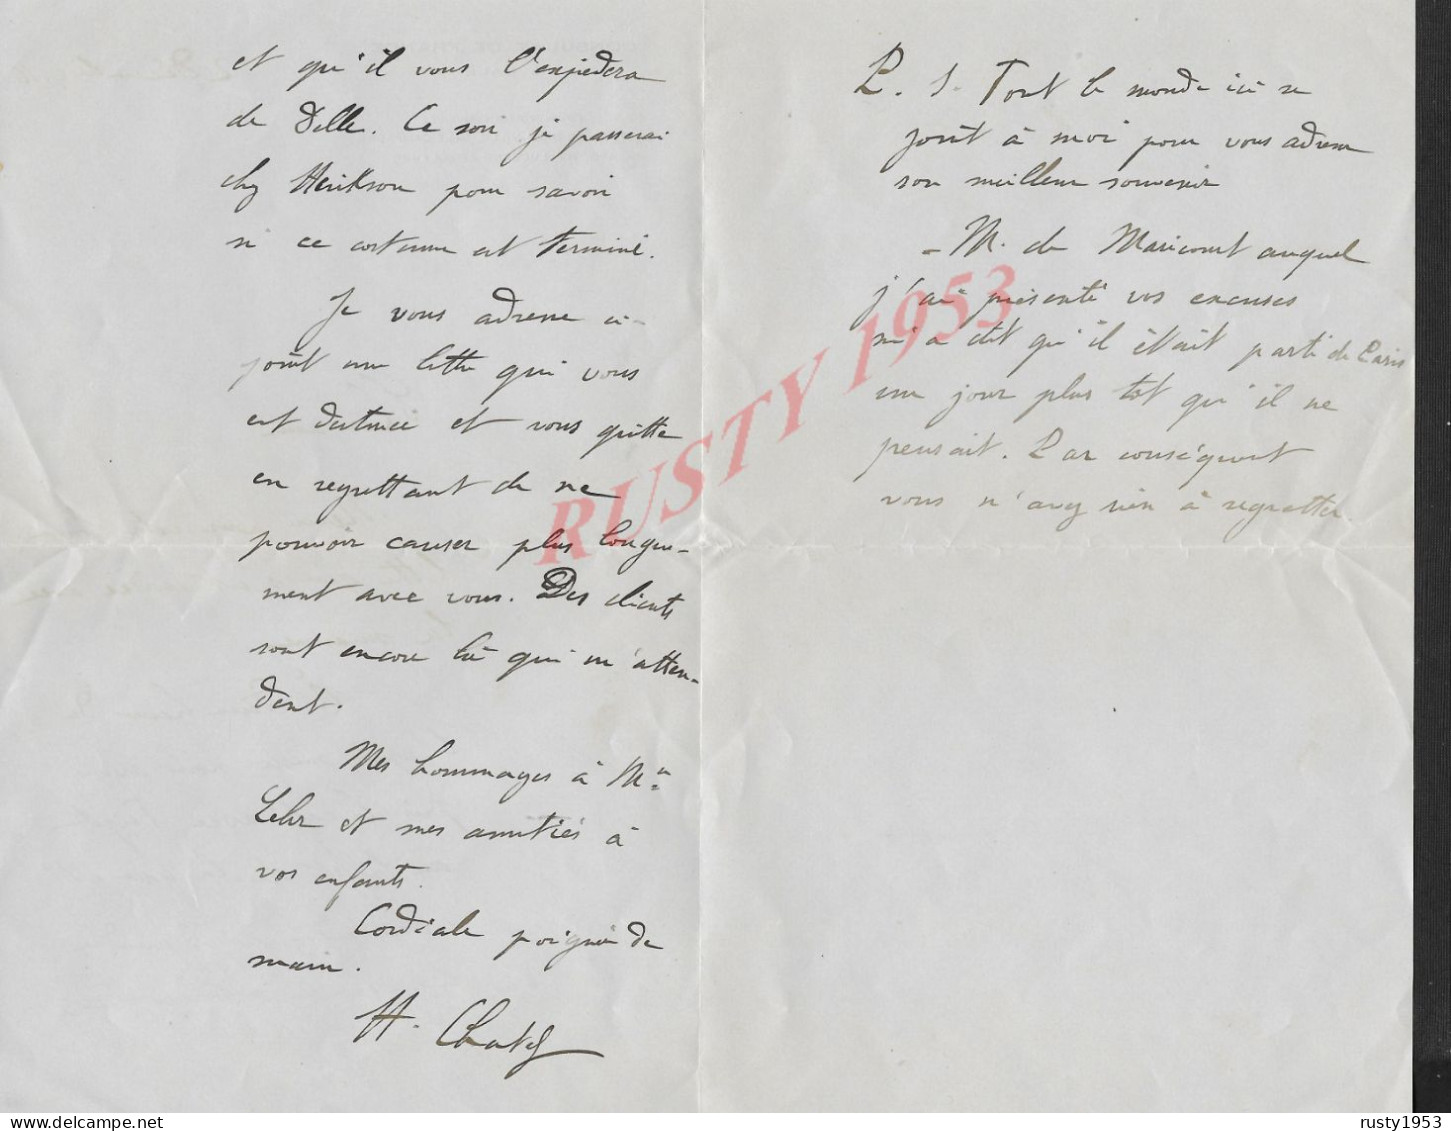 et qu'il vous l'expédera
de Delle. Ce soir je passerai
chez Henkson pour savoir
si ce costume est terminé.
Je vous adresse ci-
joint une lettre qui vous
est destinée et vous quitte
en regrettant de ne
pouvoir causer plus longue-
ment avec vous. Des clients
sont encore là qui m'atten-
dent.
Mes hommages à Mme
Lehr et mes amitiés à
vos enfants.
Cordiale poignée de
main.
H. Chatel
P. S. Tout le monde ici se
joint à moi pour vous adresser
son meilleur souvenir
- M. de Maricourt auquel
j'ai présenté vos excuses
m'a dit qu'il était parti de Paris
un jour plus tot qu'il ne
pensait. Par conséquent
vous n'avez rien à regretter
RUSTY 1953
rusty1953